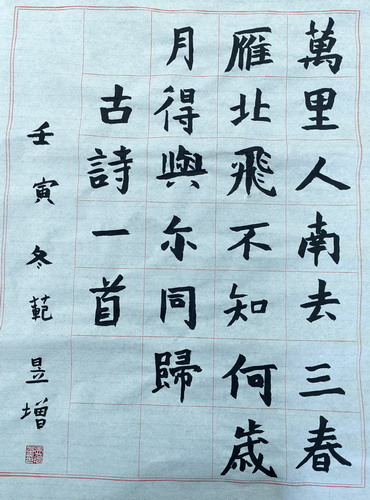 萬里人南去三春
雁北飛不知何歲
月得與尓同歸
古詩一首
壬寅冬範昱增